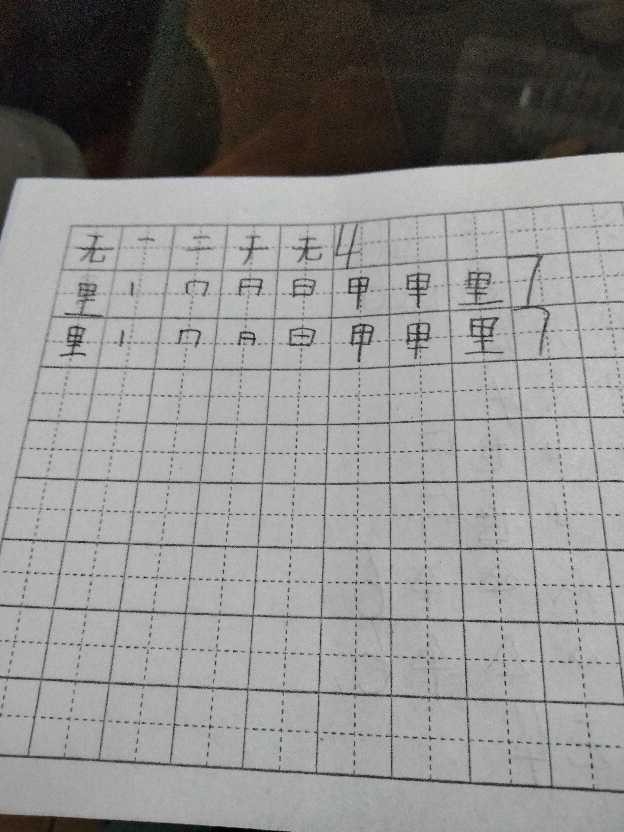 无 一 二 于 无 4
里 丨 冂 日 日 甲 甲 里 7
里 丨 冂 日 日 甲 甲 里 7